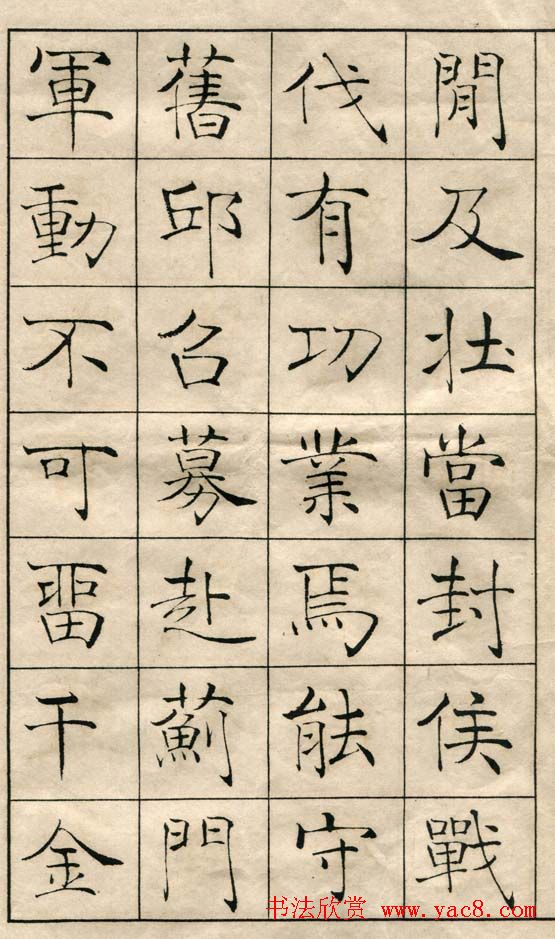 閒及壯當封侯戰
伐有功業焉能守
舊邱召募赴薊門
軍動不可畱千金
书法欣赏 www.yac8.com